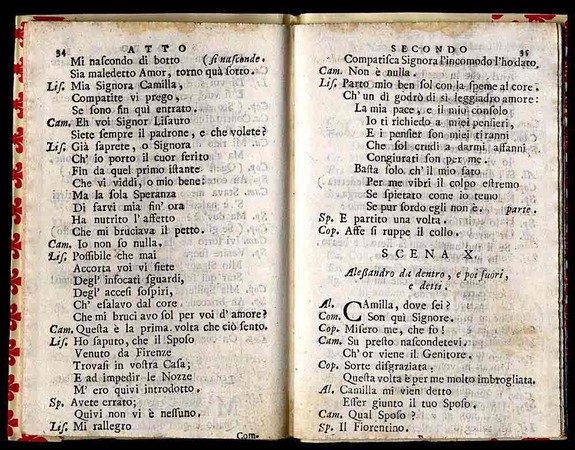 34 ATTO
Mi nascondo di botto (si nasconde.
Sia maledetto Amor, torno quà sotto.
Lis. Mia Signora Camilla,
Compatite vi prego,
Se sono fin quì entrato.
Cam. Eh voi Signor Lisauro
Siete sempre il padrone, e che volete?
Lis. Già saprete, o Signora
Ch' io porto il cuor ferito
Fin da quel primo istante
Che vi viddi, o mio bene:
Ma la sola Speranza
Di farvi mia fin' ora
Ha nutrito l' affetto
Che mi bruciava il petto.
Cam. Io non so nulla.
Lis. Possibile che mai
Accorta voi vi siete
Degl' infocati sguardi,
Degl' accesi sospiri,
Ch' esalavo dal core
Che mi bruci avo sol per voi d' amore?
Cam. Questa è la prima volta che ciò sento.
Lis. Ho saputo, che il Sposo
Venuto da Firenze
Trovasi in vostra Casa;
E ad impedir le Nozze
M' ero quivi introdotto.
Sp. Avete errato;
Quivi non vi è nessuno.
Lis. Mi rallegro
Com-
SECONDO 35
Compatisca Signora l'incomodo l'ho dato,
Cam. Non è nulla.
Lis. Parto mio ben sol con la speme al core.
Ch' un dì godrò di sì leggiadro amore:
La mia pace, e il mio consolo
Io ti richiedo a miei pensieri,
E i pensier son miei tiranni
Che sol crudi a darmi affanni
Congiurati son per me.
Basta solo, ch' il mio fato
Per me vibri il colpo estremo
Se spietato come io temo
Se pur sordo egli non è. parte.
Sp. E partito una volta.
Cop. Affe si ruppe il collo.
SCENA X.
Alessandro da dentro, e poi fuori,
e detti.
Al. CAmilla, dove sei?
Com. Son quì Signore.
Cop. Misero me, che fo!
Cam. Su presto nascondetevi.
Ch' or viene il Genitore.
Cop. Sorte disgraziata.
Questa volta è per me molto imbrogliata.
Al. Camilla mi vien detto
Esser giunto il tuo Sposo.
Cam. Qual Sposo?
Sp. Il Fiorentino.